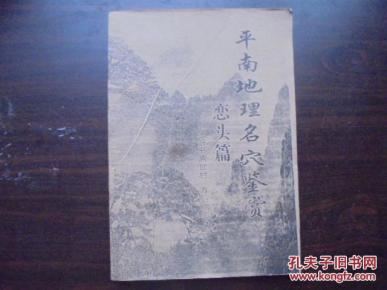 平南地理名穴鉴赏
峦头篇
孔夫子旧书网